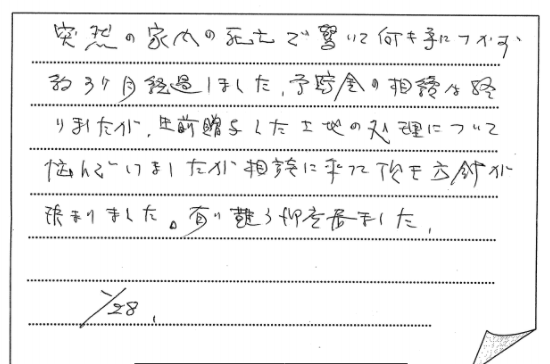 突然の家内の死亡で驚いて何も手につかず
約3ヶ月経過しました。予貯金の相続は終
りましたが、生前贈与した土地の処理について
悩んでいましたが相談に来て頂き方針が
決まりました。有り難う御座居ました。
1/28.